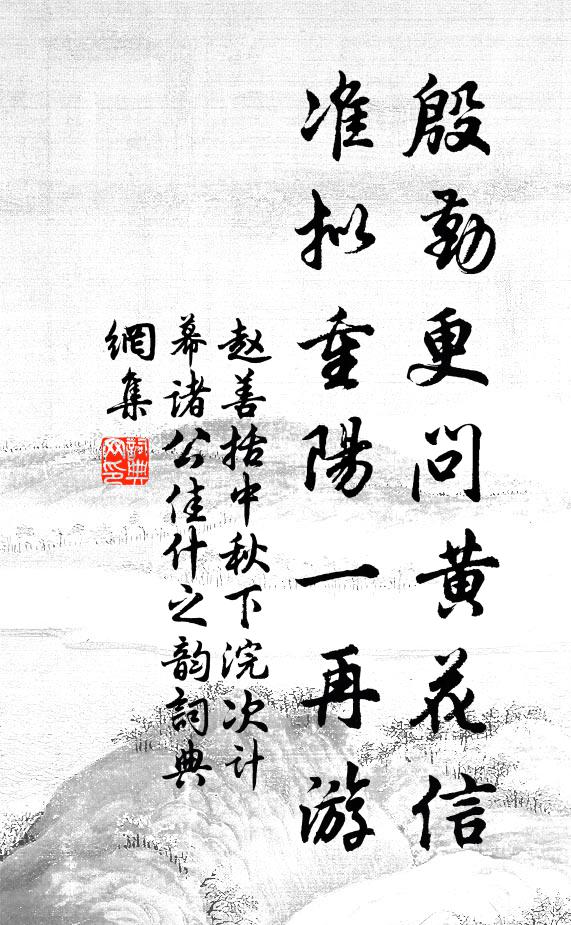 殷勤更问黃花信
准拟重陽一再游
赵善括中秋下浣次计
幕诸公佳什之韵詞典
網集